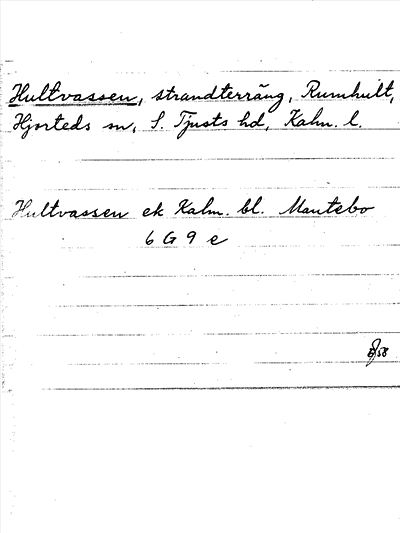 Hultvassen, strandterräng, Rumhult,
Hjorteds sn, S. Tjusts hd, Kalm. l.
Hultvassen ek Kalm. bl. Mantebo
6 G 9 e